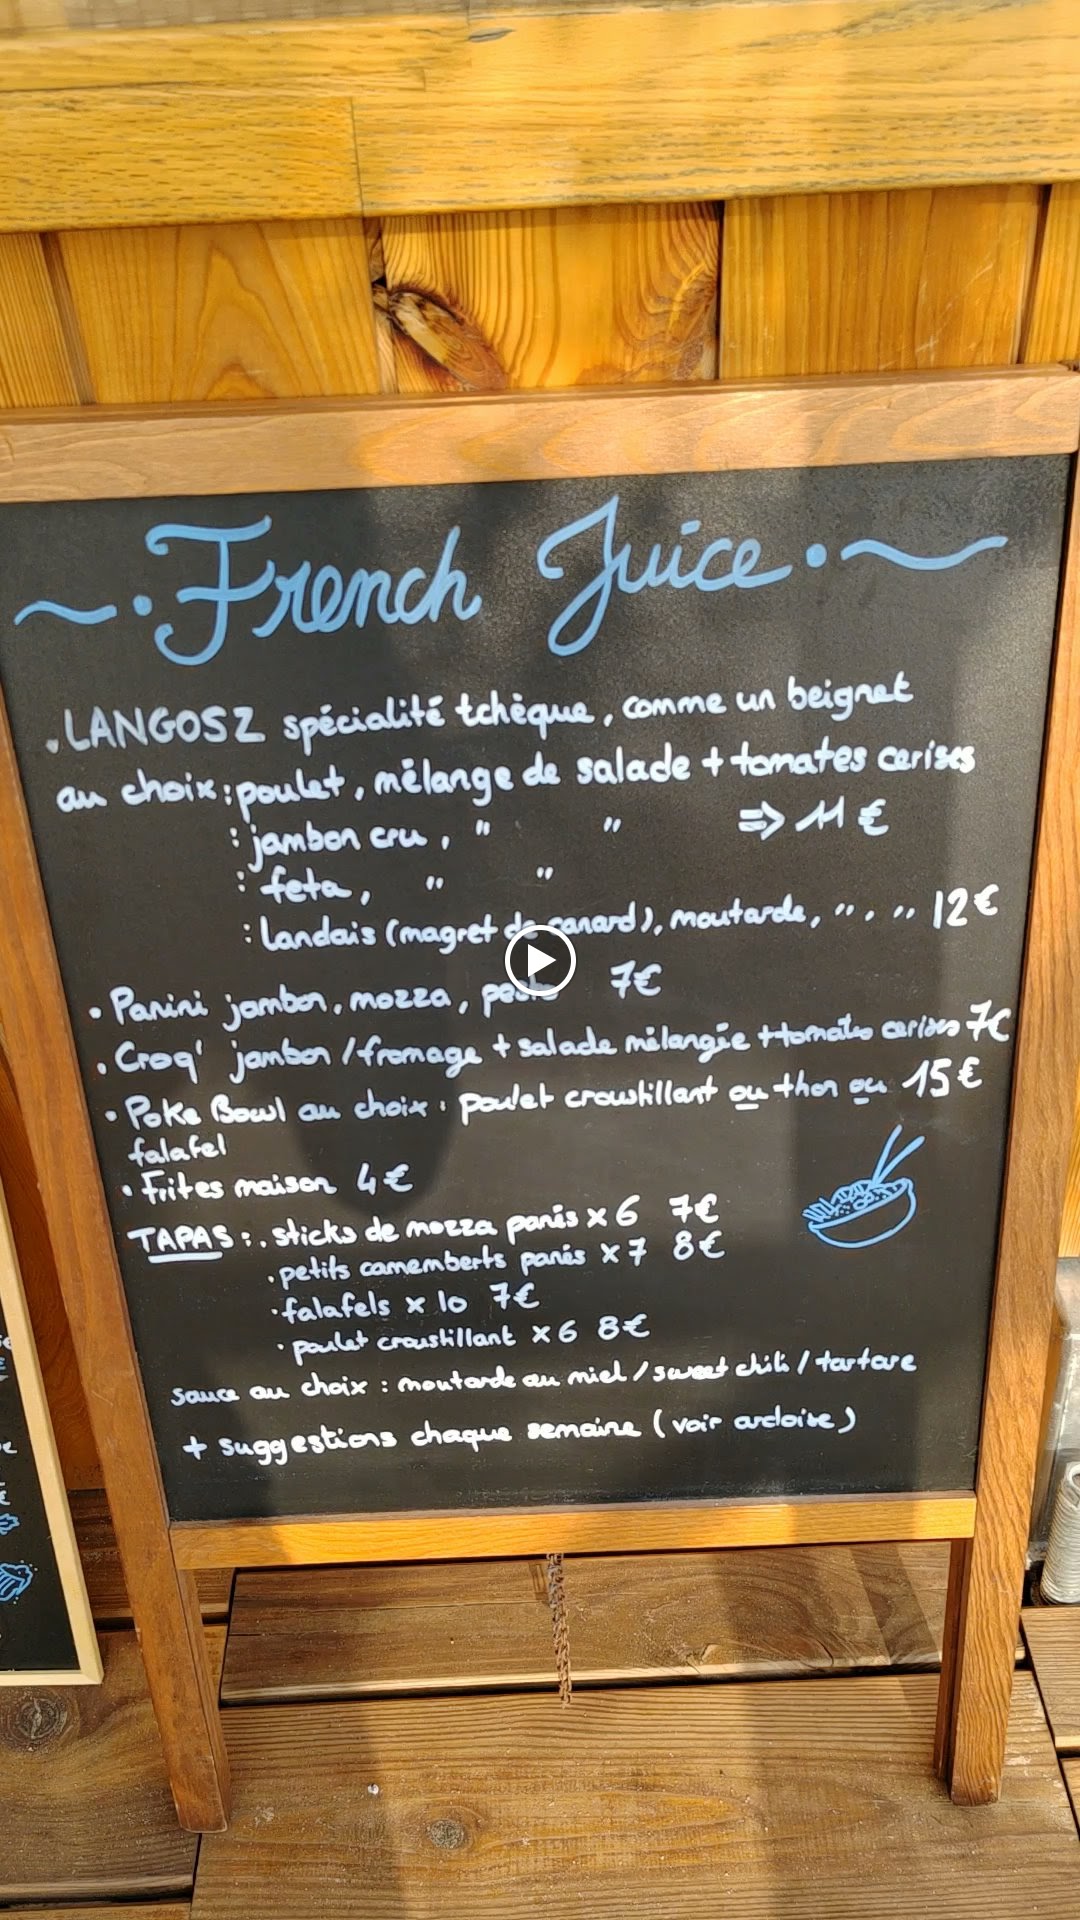 French Juice
• LANGOSZ spécialité tchèque, comme un beignet
au choix : poulet, mélange de salade + tomates cerises
: jambon cru, " " => 11 €
: feta, " "
: landais (magret de canard), moutarde, " , " 12 €
• Panini jambon, mozza, pesto 7€
• Croq' jambon / fromage + salade mélangée + tomates cerises 7€
• Poke Bowl au choix : poulet croustillant ou thon ou 15 €
falafel
• Frites maison 4 €
TAPAS : • sticks de mozza panés x 6 7€
• petits camemberts panés x 7 8€
• falafels x 10 7€
• poulet croustillant x 6 8€
sauce au choix : moutarde au miel / sweet chili / tartare
+ suggestions chaque semaine (voir ardoise)